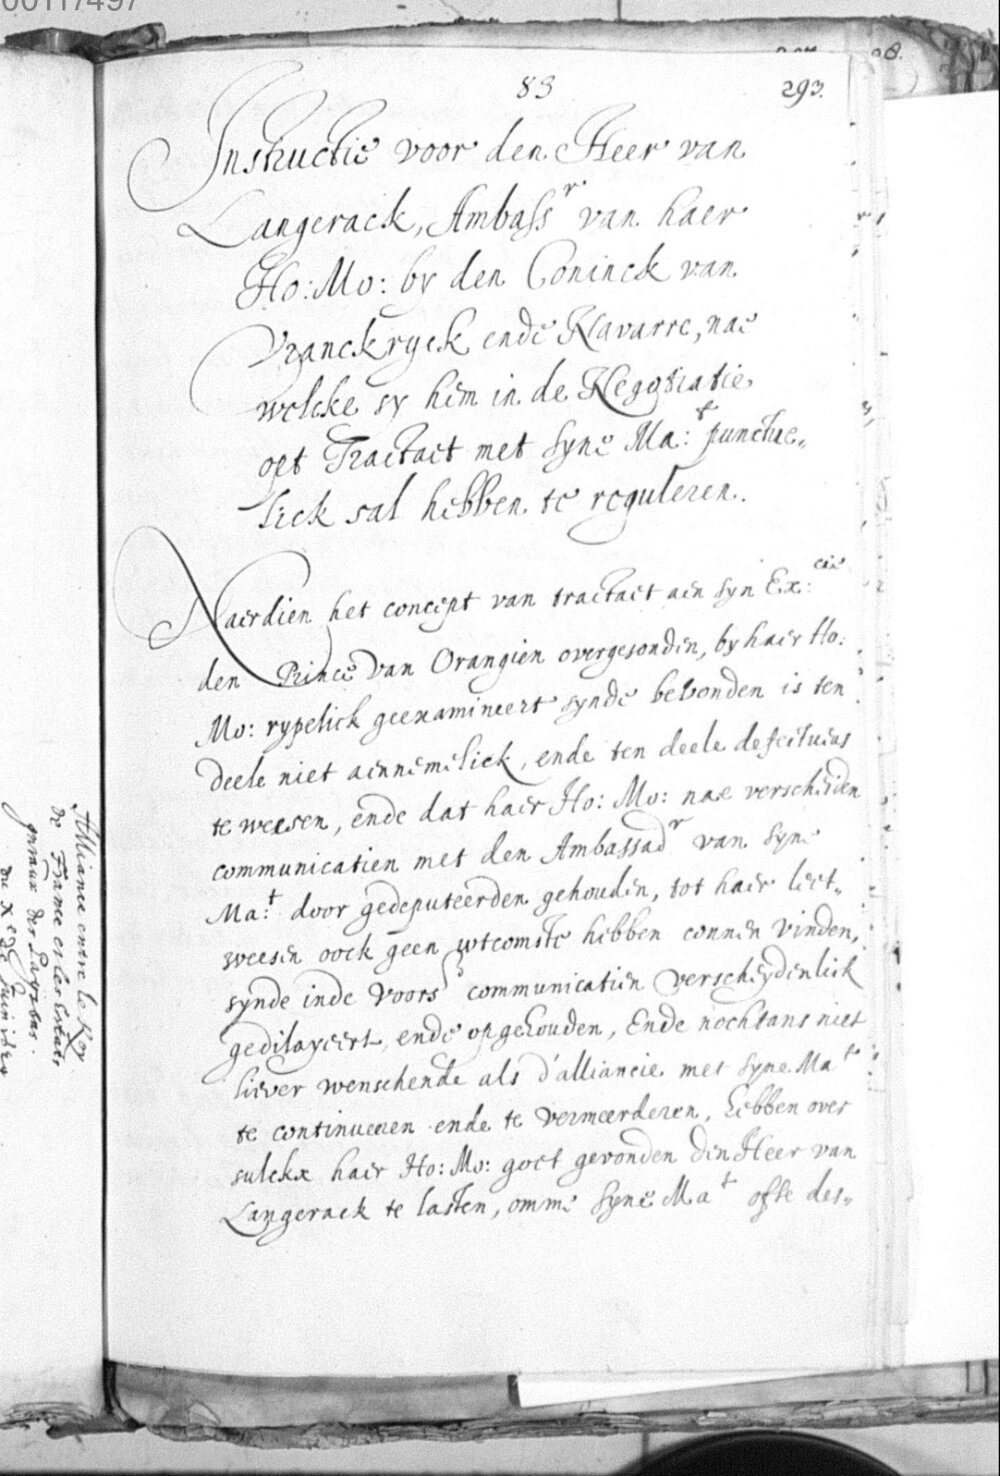 00117497
83
293.
Instructie voor den Heer van
Langerack, Ambassr van haer
Ho: Mo: by den Coninck van
Vranckryck ende Navarre, nae
welcke sy hem in de Negotiatie
opt Tractaet met syne Ma:t punctue„
lick sal hebben te reguleren.
Naerdien het concept van tractaet aen syn Ex:cie
den Prince van Orangien overgesonden, by haer Ho:
Mo: rypelick geexamineert synde bevonden is ten
deele niet aennemelick, ende ten deele defectueus
te weesen, ende dat haer Ho: Mo: nae verscheiden
communicatien met den Ambassadr van syne
Ma:t door gedeputeerden gehouden, tot haer leet„
weesen oock geen wtcomste hebben connen vinden,
synde inde voors communicatien verscheydenlick
gedilayeert, ende opgehouden, Ende nochtans niet
liever wenschende als d'alliancie met syne Mat
te continueren ende te vermeerderen, hebben over
sulckx haer Ho: Mo: goet gevonden den Heer van
Langerack te lasten, omme syne Mat ofte des„
Alliance entre le Roy
de France et les Estats
gnraux des Pays bas.
du Xe de Juin